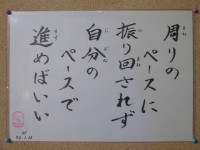 周りの
ペースに
振り回されず
自分の
ペースで
進めばいい